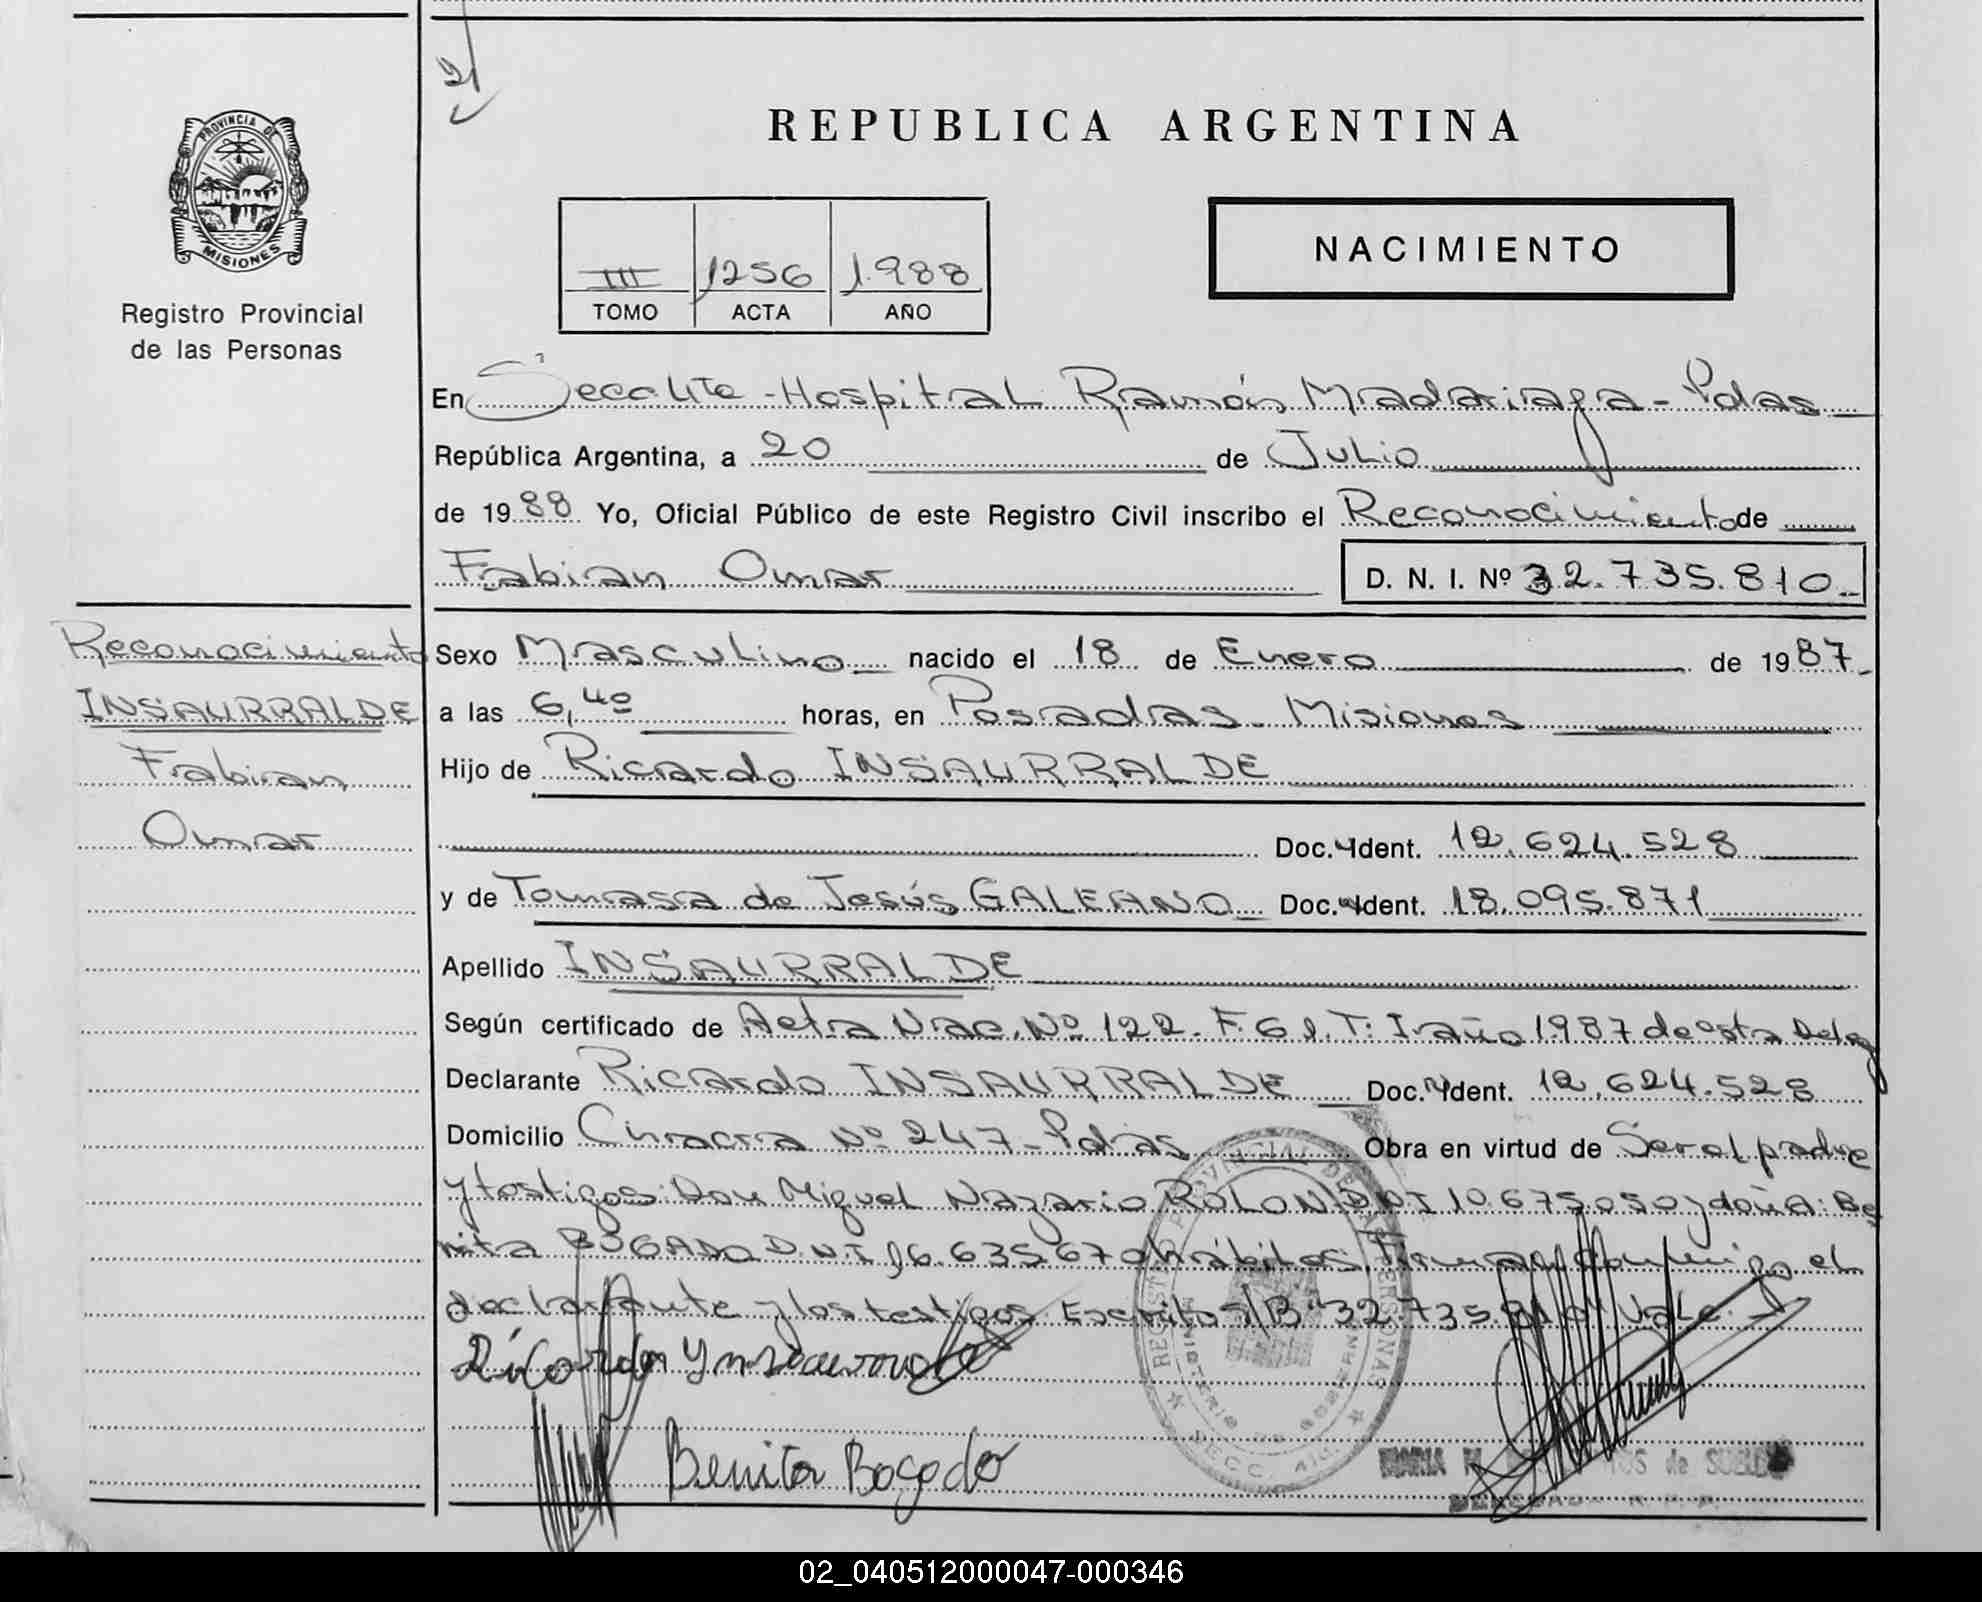 21
REPUBLICA ARGENTINA
PROVINCIA DE
MISIONES
Registro Provincial
de las Personas
III 1256 1.988
TOMO ACTA AÑO
NACIMIENTO
En Secc 4ta - Hospital Ramón Madariaga - Pdas
República Argentina, a 20 de Julio
de 1988 Yo, Oficial Público de este Registro Civil inscribo el Reconocimiento de
Fabian Omar D. N. I. Nº 32.735.810
Reconocimiento
INSAURRALDE
Fabian
Omar
Sexo Masculino nacido el 18 de Enero de 1987
a las 6,40 horas, en Posadas - Misiones
Hijo de Ricardo INSAURRALDE
Doc. Ident. 12.624.528
y de Tomasa de Jesús GALEANO Doc. Ident. 18.095.871
Apellido INSAURRALDE
Según certificado de Acta Nac. Nº 122. F. 61. T: I. año 1987 de esta Deleg
Declarante Ricardo INSAURRALDE Doc. Ident. 12.624.528
Domicilio Nº 247 - Pdas Obra en virtud de Ser el padre
y testigos: Don Miguel Nazario ROLON D.N.I 10.675.050 y doña: Be
nita BOGADO D.N.I 16.635.670 hábiles. Firman conmigo el
declarante y los testigos. Escrito s/B "32.735.810" Vale.
Ricardo Ynsaurralde
Benita Bogado
REGISTRO PROVINCIAL DE LAS PERSONAS
MINISTERIO DE GOBIERNO
MARIA de SUELDO
02_040512000047-000346